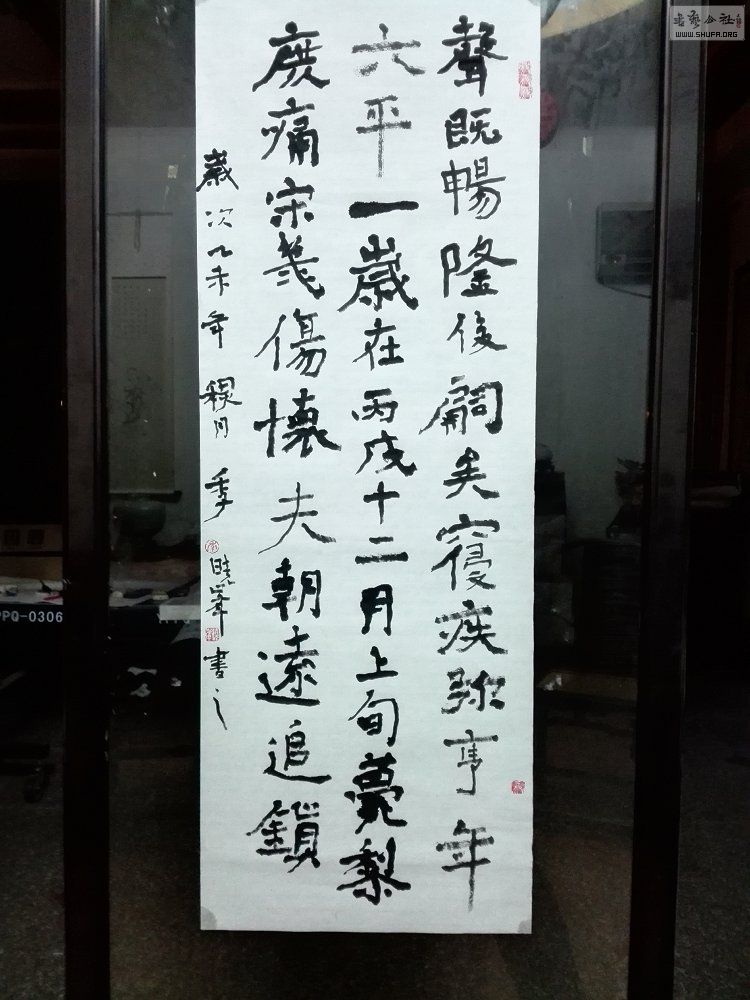 聲既暢隆後嗣矣寢疾弥亨年
六平一歲在丙戌十二月上旬薨梨
庶痛宗義傷懷夫朝遠追鎖
歲次乙未年 穆月 季曉峯書之
書藝公社
WWW.SHUFA.ORG
PPQ-0306